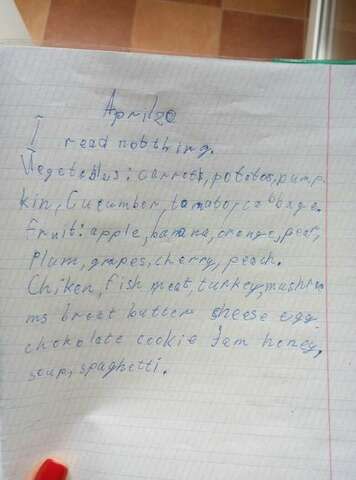 April 20
I read nobthing.
Vegetebls: carrots, pototos, pump
kin, Cucumber, tomato, cabbage.
fruit: apple, banana, orenge, pear,
Plum, grapes, cherry, peach.
Chiken, fish meat, turkey, mushro
ms breat batter cheese egg
chokolate cookie Jam honey,
soup, spaghetti.